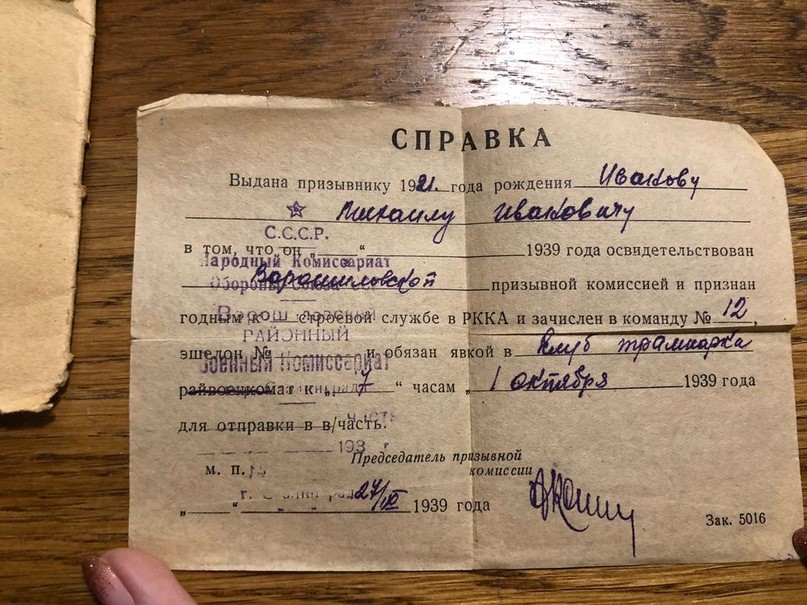 СПРАВКА
Выдана призывнику 1921. года рождения Иванову
Михаилу Ивановичу
С.С.С.Р.
в том, что он „ “ 1939 года освидетельствован
Народный Комиссариат
Ворошиловской призывной комиссией и признан
Обороны Союза
годным к строевой службе в РККА и зачислен в команду № 12,
РАЙОННЫЙ
эшелон № и обязан явкой в клуб трампарка
Военный Комиссариат
райвоенкомат к „ 7 “ часам „ 1 октября 1939 года
для отправки в в/часть.
193 г.
Председатель призывной
м. п. комиссии
27/IX 1939 года
Зак. 5016